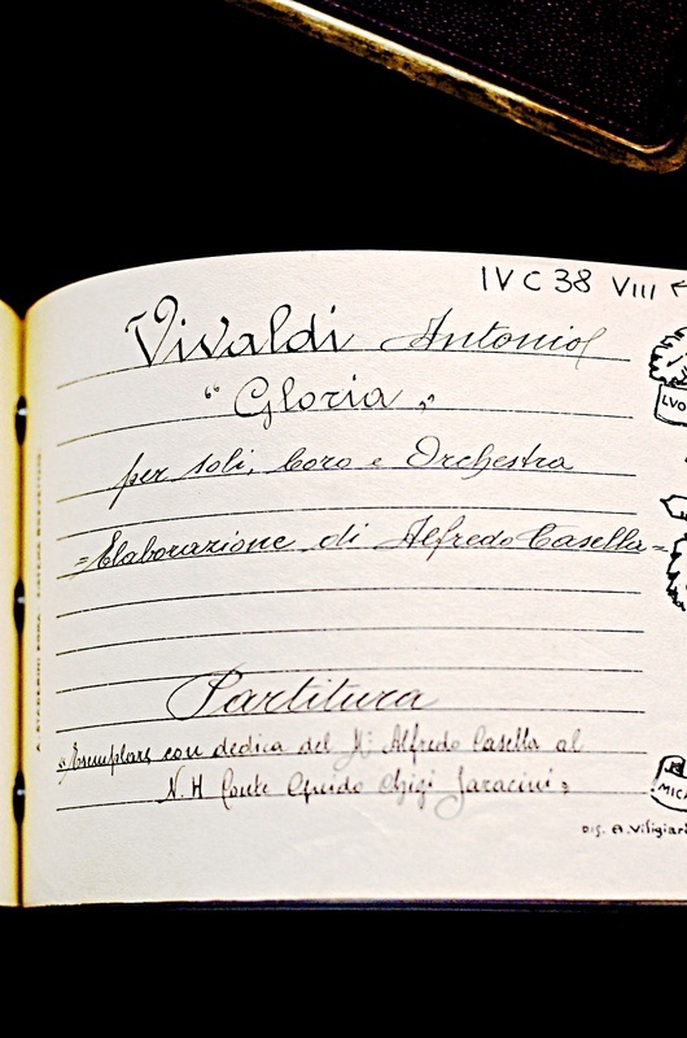 IV C 38 VIII
Vivaldi Antonio
"Gloria„
per soli, Coro e Orchestra
=Elaborazione di Alfredo Casella=
Partitura
"Esemplare con dedica del M° Alfredo Casella al
N.H Conte Guido Chigi Saracini"
LVO
MICA
DIS. A. Viligiar
A. STADERINI ROMA - SISTEMA BREVETTATO